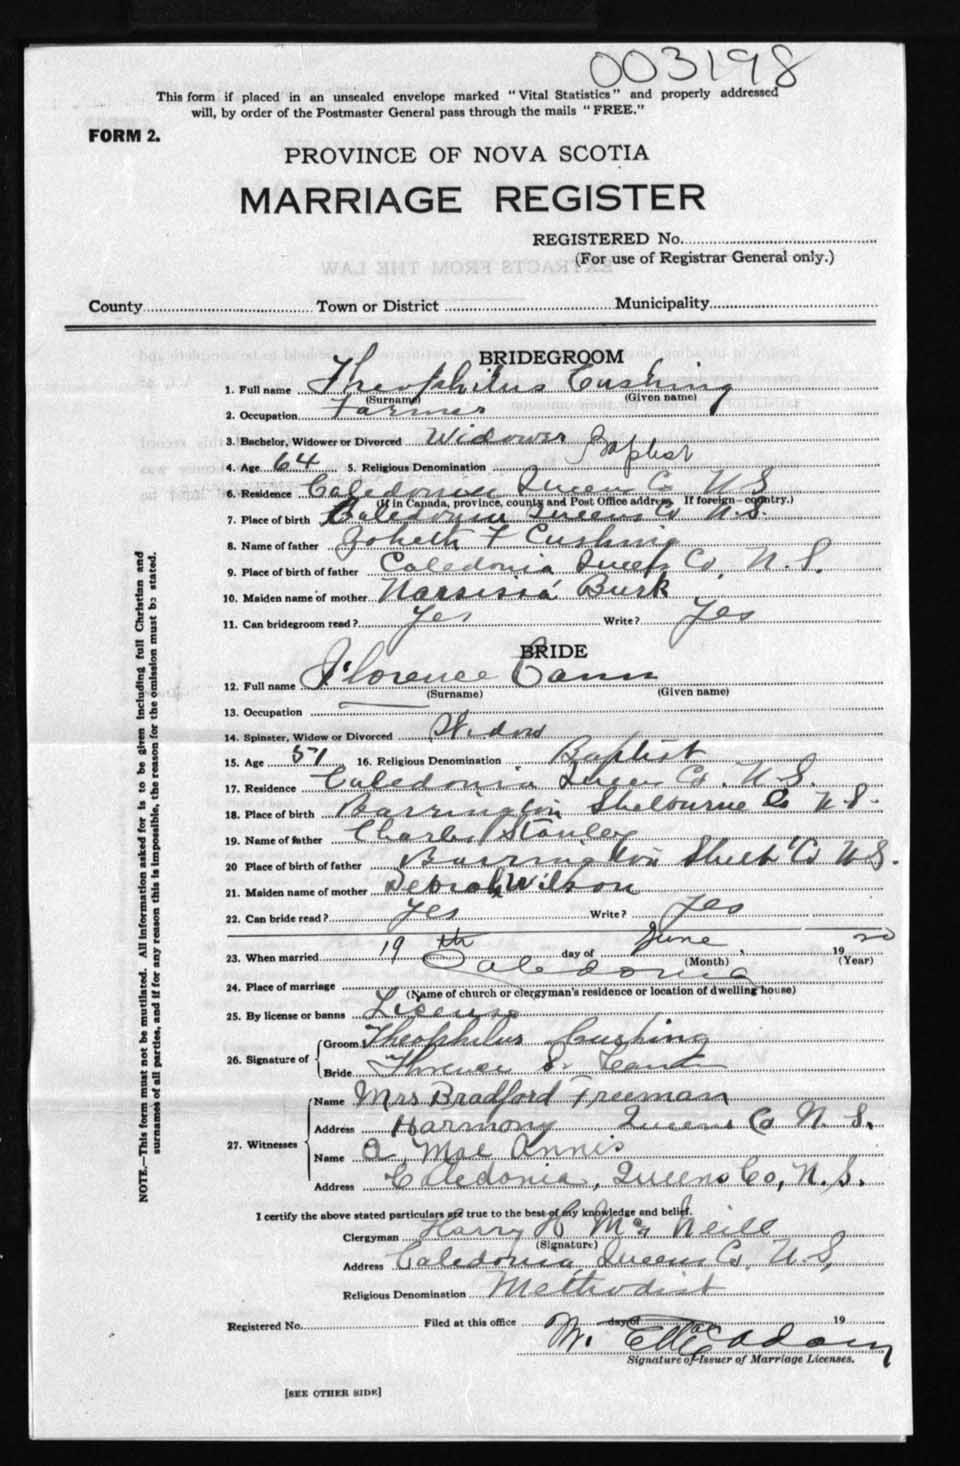 003198
This form if placed in an unsealed envelope marked "Vital Statistics" and properly addressed
will, by order of the Postmaster General pass through the mails "FREE."
FORM 2.
PROVINCE OF NOVA SCOTIA
MARRIAGE REGISTER
REGISTERED No.
(For use of Registrar General only.)
EXTRACTS FROM THE LAW
County Town or District Municipality
BRIDEGROOM
1. Full name Theophilus Cushing
(Surname) (Given name)
2. Occupation Farmer
3. Bachelor, Widower or Divorced Widower
4. Age 64 5. Religious Denomination Baptist
6. Residence Caledonia Queens Co N S
(If in Canada, province, county and Post Office address. If foreign - country.)
7. Place of birth Caledonia Queens Co N.S.
8. Name of father F Cushing
9. Place of birth of father Caledonia Co, N. S.
10. Maiden name of mother Narsisia Burk
11. Can bridegroom read? Yes Write? Yes
BRIDE
12. Full name Florence Cann
(Surname) (Given name)
13. Occupation
14. Spinster, Widow or Divorced Widow
15. Age 51 16. Religious Denomination Baptist
17. Residence Caledonia Queens Co. N.S.
18. Place of birth Barrington Shelburne Co N S.
19. Name of father Charles Stanley
20 Place of birth of father Barrington Shelb Co N S.
21. Maiden name of mother Debrah Wilson
22. Can bride read? Yes Write? Yes
23. When married 19th day of June, 1920
(Month) (Year)
24. Place of marriage Caledonia
(Name of church or clergyman's residence or location of dwelling house)
25. By license or banns License
26. Signature of Groom Theophilus Cushing
Bride Florence S. Cann
27. Witnesses Name Mrs Bradford Freeman
Address Harmony Queens Co N. S.
Name A. Mae Annis
Address Caledonia, Queens Co, N. S.
I certify the above stated particulars are true to the best of my knowledge and belief.
Clergyman Harry H McNeill
(Signature)
Address Caledonia Queens Co, N. S,
Religious Denomination Methodist
Registered No. Filed at this office day of 19
W. E.
Signature of Issuer of Marriage Licenses.
[SEE OTHER SIDE]
NOTE.—This form must not be mutilated. All information asked for is to be given including full Christian and
surnames of all parties, and if for any reason this is impossible, the reason for the omission must be stated.